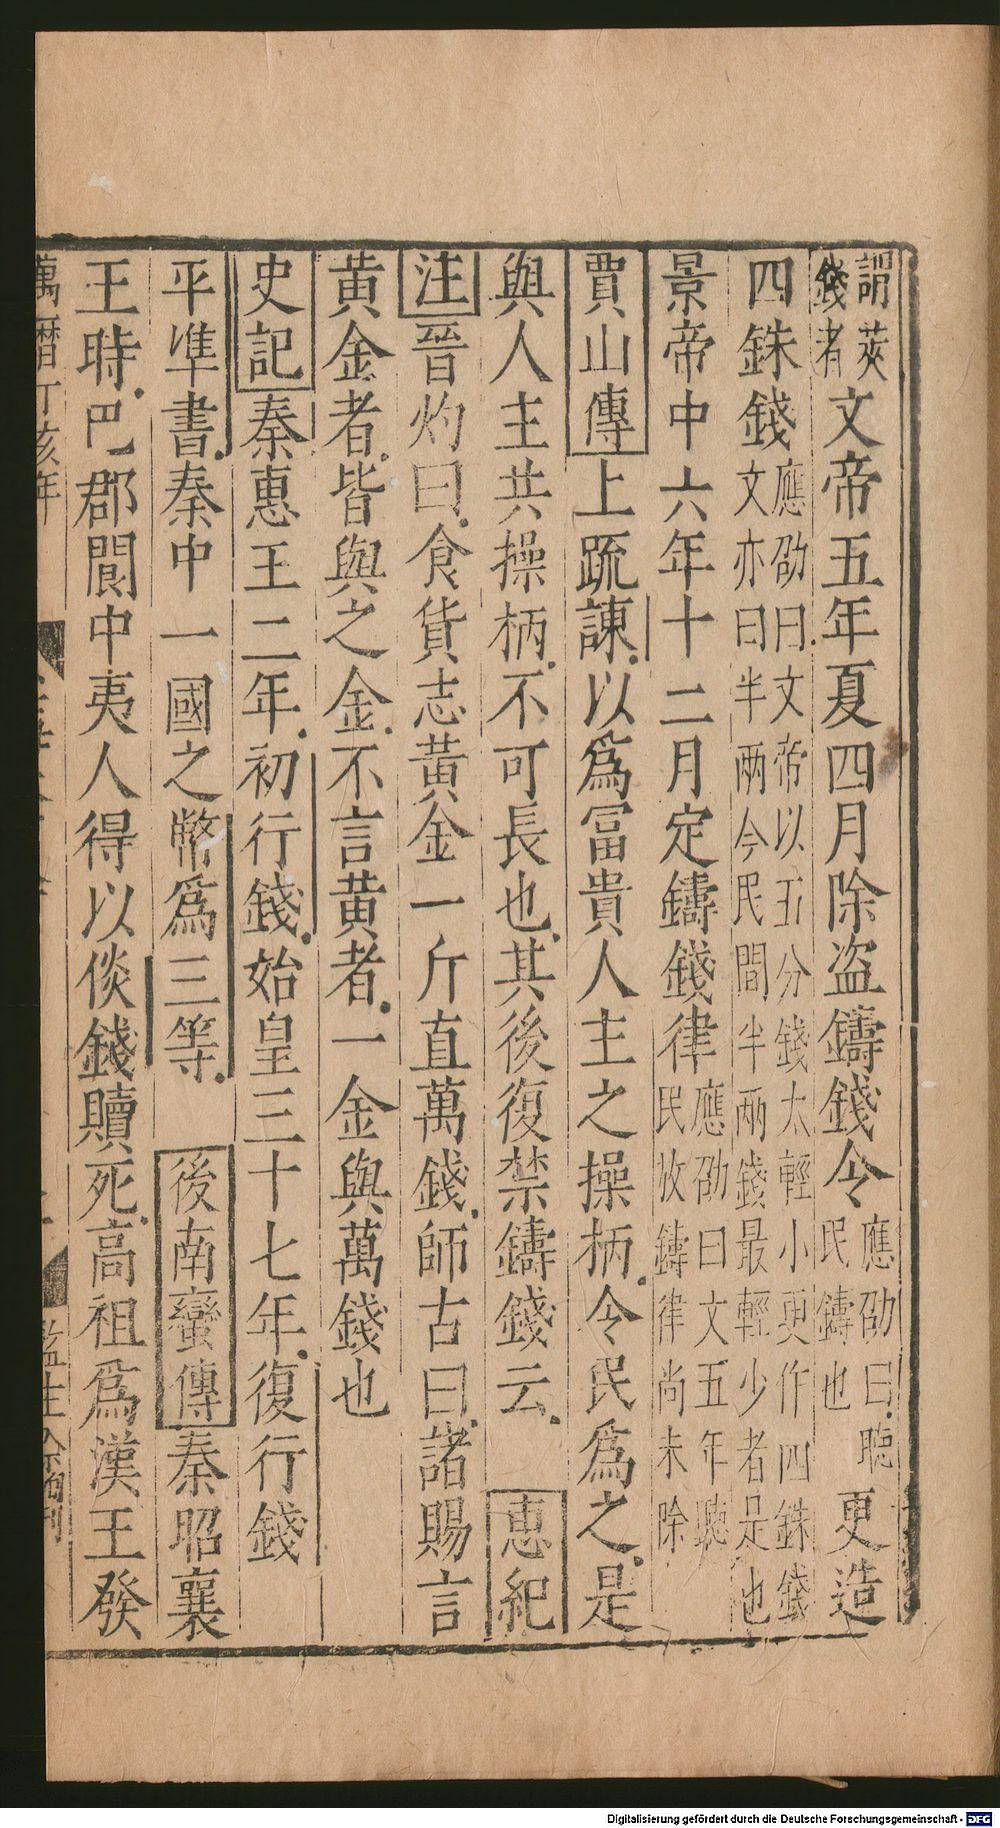 謂莢錢者文帝五年夏四月除盜鑄錢令應劭曰聽民鑄也更造
四銖錢應劭曰文帝以五分錢太輕小更作四銖錢文亦曰半兩今民間半兩錢最輕少者是也
景帝中六年十二月定鑄錢律應劭曰文五年聽民放鑄律尚未除
賈山傳上疏諫以為富貴人主之操柄令民為之是
與人主共操柄不可長也其後復禁鑄錢云惠紀
注晉灼曰食貨志黃金一斤直萬錢師古曰諸賜言
黃金者皆與之金不言黃者一金與萬錢也
史記秦惠王二年初行錢始皇三十七年復行錢
平準書秦中一國之幣為三等後南蠻傳秦昭襄
王時巴郡閬中夷人得以倓錢贖死高祖為漢王發
萬曆丁亥年
監生
刊
Digitalisierung gefördert durch die Deutsche Forschungsgemeinschaft - DFG